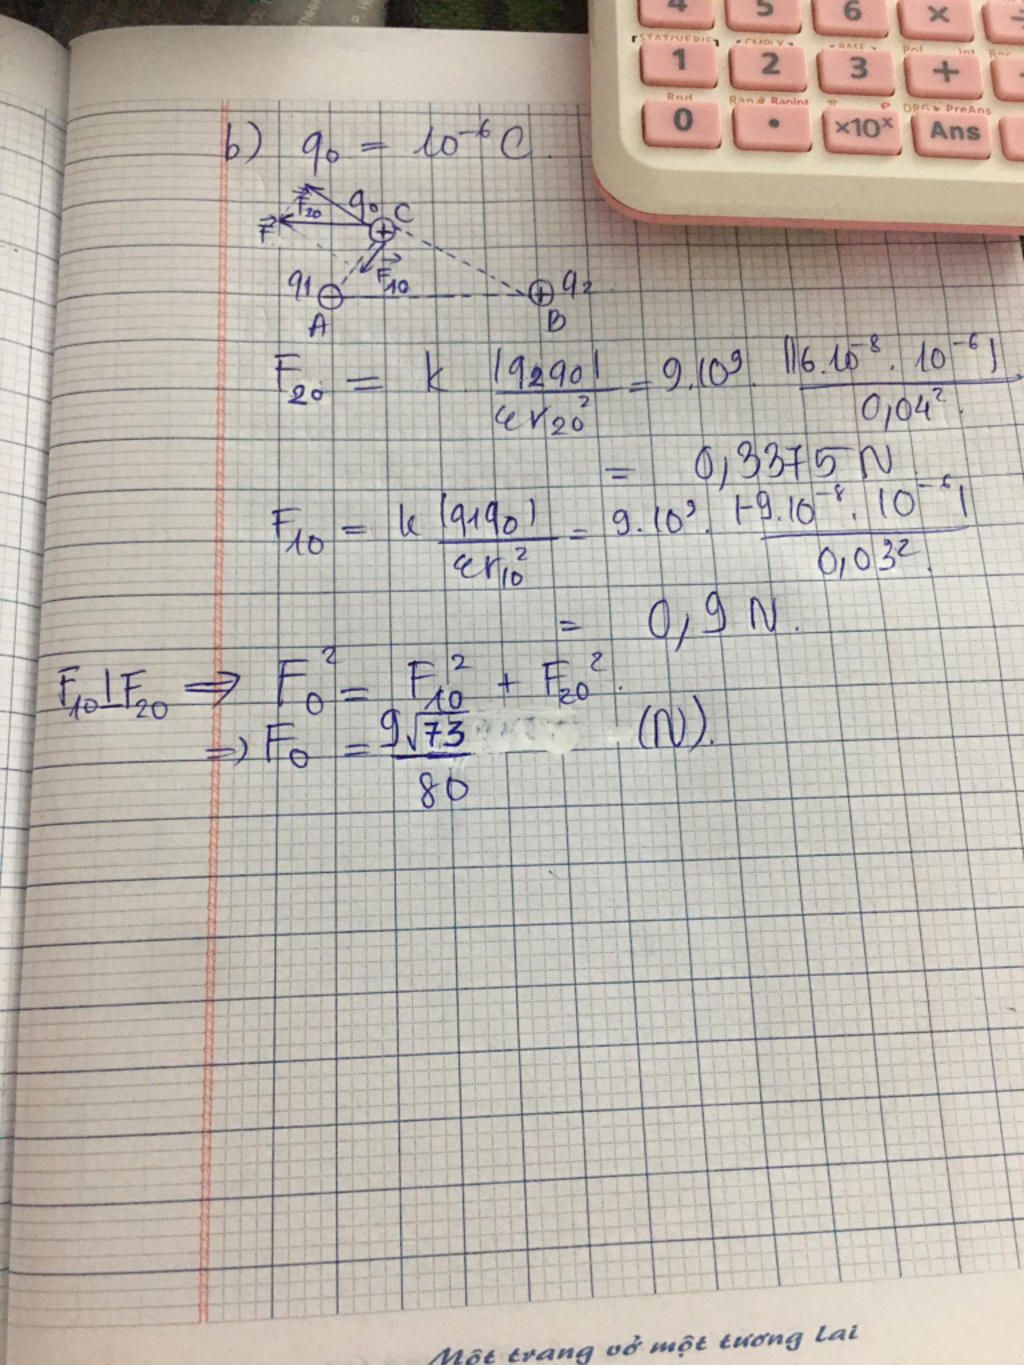 4 5 6 × ÷
STAT/VERIF CMPLX BASE Pol Int Rec
1 2 3 +
Rnd Ran# RanInt π e DRG▸ PreAns
0 • ×10ˣ Ans
b) q₀ = 10⁻⁶ C.
F₂₀ q₀ C
F
q₁ F₁₀ q₂
A B
F₂₀ = k |q₂q₀| / εr₂₀² = 9.10⁹. |16.10⁻⁸. 10⁻⁶| / 0,04².
= 0,3375 N
F₁₀ = k |q₁q₀| / εr₁₀² = 9.10⁹. |-9.10⁻⁸. 10⁻⁶| / 0,03².
= 0,9 N.
F₁₀⊥F₂₀ ⇒ F₀² = F₁₀² + F₂₀².
⇒ F₀ = 9√73 / 80 (N).
Một trang vở một tương lai